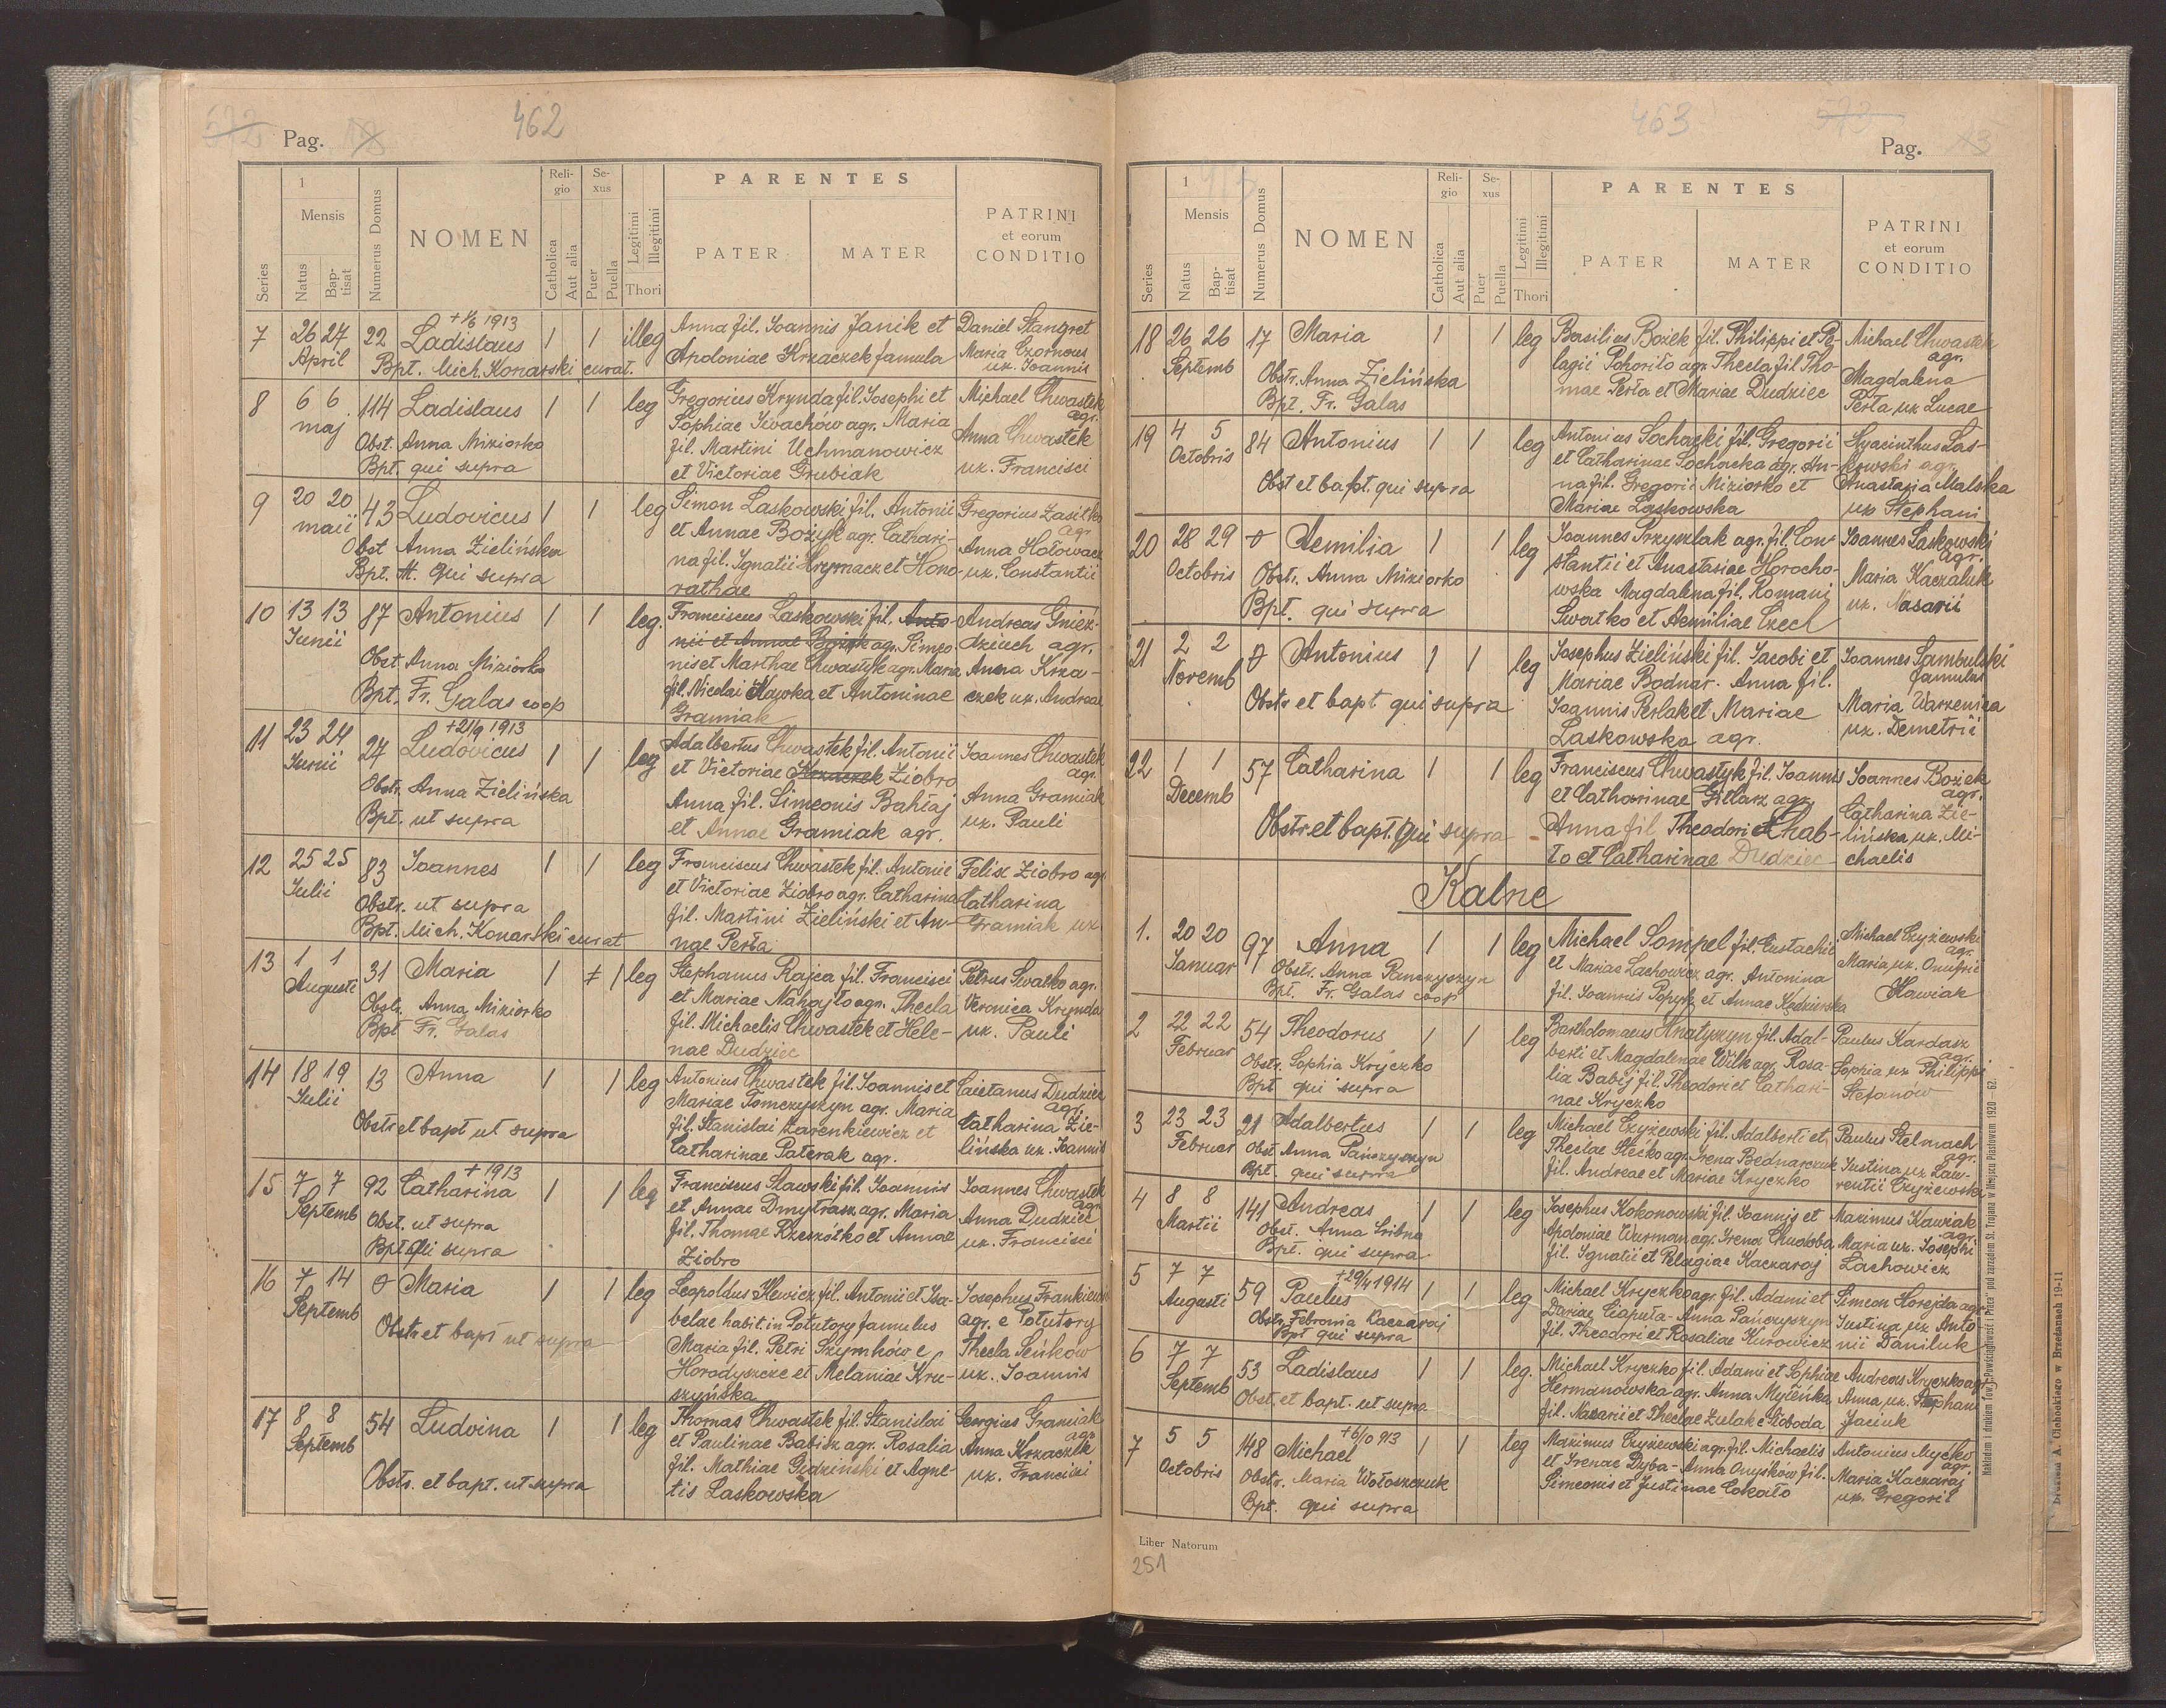 572 Pag. 12
462
Series
1
Mensis
Natus
Bap-
tisat
Numerus Domus
NOMEN
Reli-
gio
Catholica
Aut alia
Se-
xus
Puer
Puella
Legitimi
Illegitimi
Thori
PARENTES
PATER
MATER
PATRINI
et eorum
CONDITIO
7 26 27 April 22 + 1/6 1913 Ladislaus 1 1 illeg
Bpt. Mich. Konarski curat.
Anna fil. Joannis Janik et
Apoloniae Krzaczek famula
Daniel Stangret
Maria Czornous
ux. Joannis
8 6 6 maj 114 Ladislaus 1 1 leg
Obst. Anna Miziorko
Bpt. qui supra
Gregorius Krynda fil. Josephi et
Sophiae Iwachów agr. Maria
fil. Martini Uchmanowicz
et Victoriae Grubiak
Michael Chwastek
agr.
Anna Chwastek
ux. Francisci
9 20 20 maii 43 Ludovicus 1 1 leg
Obst Anna Zielińska
Bpt. qui supra
Simon Laskowski fil. Antonii
et Annae Bożyk agr. Cathari-
na fil. Ignatii Hrymacz et Hono-
rathae
Gregorius Zasitko
agr
Anna Hołowacz
ux. Constantii
10 13 13 Junii 87 Antonius 1 1 leg.
Obst. Anna Miziorko
Bpt. Fr. Galas coop
Franciscus Laskowski fil. Anto-
nii et Annae Bożyk agr. Simeo
nis et Marthae Chwastyk agr. Maria
fil. Nicolai Kajoka et Antoninae
Gramiak
Andreas Gnież-
dziuch agr.
Anna Krza-
czek ux. Andreae
11 23 24 Junii 27 + 21/9 1913 Ludovicus 1 1 leg
Obstr. Anna Zielińska
Bpt. ut supra
Adalbertus Chwastek fil. Antonii
et Victoriae Krzaczek Ziobro
Anna fil. Simeonis Bahłaj
et Annae Gramiak agr.
Joannes Chwastek
agr.
Anna Gramiak
ux. Pauli
12 25 25 Julii 83 Joannes 1 1 leg
Obstr. ut supra
Bpt. Mich. Konarski curat
Franciscus Chwastek fil. Antonii
et Victoriae Ziobro agr. Catharina
fil. Martini Zieliński et An-
nae Perła
Felix Ziobro agr
Catharina
Gramiak ux
13 1 1 Augusti 31 Maria 1 1 leg
Obstr. Anna Miziorko
Bpt Fr. Galas
Stephanus Rajca fil. Francisci
et Mariae Nahajło agr. Thecla
fil. Michaelis Chwastek et Hele-
nae Dudziec
Petrus Swatko agr.
Veronica Krynda
ux. Pauli
14 18 19 Julii 13 Anna 1 1 leg
Obstr et bapt ut supra
Antonius Chwastek fil. Joannis et
Mariae Tomczyszyn agr. Maria
fil. Stanislai Zarenkiewicz et
Catharinae Paterak agr.
Caietanus Dudziec
agr.
Catharina Zie-
lińska ux. Joannis
15 7 7 Septemb 92 + 1913 Catharina 1 1 leg
Obst. ut supra
Bpt qui supra
Franciscus Sławski fil. Joannis
et Annae Dmytrasz agr. Maria
fil. Thomae Rzeszótko et Annae
Ziobro
Joannes Chwastek
agr
Anna Dudziec
ux. Francisci
16 7 14 Septemb Maria 1 1 leg
Obstr et bapt ut supra
Leopoldus Hlewicz fil. Antonii et Isa-
belae habit. in Potutory famulus
Maria fil. Petri Szymków e
Horodyszcze et Melaniae Kru-
szyńska
Josephus Frankiewi
agr. e Potutory
Thecla Seńkow
ux. Joannis
17 8 8 Septemb 54 Ludvina 1 1 leg
Obstr. et bapt. ut supra
Thomas Chwastek fil. Stanislai
et Paulinae Babisz agr. Rosalia
fil. Mathiae Gidziński et Agne-
tis Laskowska
Georgius Gramiak
agr
Anna Krzaczek
ux. Francisci
463
573
Pag. 13
Series
1
Mensis
Natus
Bap-
tisat
Numerus Domus
NOMEN
Reli-
gio
Catholica
Aut alia
Se-
xus
Puer
Puella
Legitimi
Illegitimi
Thori
PARENTES
PATER
MATER
PATRINI
et eorum
CONDITIO
18 26 26 Septemb 17 Maria 1 1 leg
Obstr. Anna Zielińska
Bpt. Fr. Galas
Basilius Bożek fil. Philippi et Pe-
lagii Pohoriło agr. Thecla fil Tho-
mae Perła et Mariae Dudziec
Michael Chwastek
agr.
Magdalena
Perła ux Lucae
19 4 5 Octobris 84 Antonius 1 1 leg
Obst et bapt. qui supra
Antonius Sochacki fil. Gregorii
et Catharinae Sochacka agr. An-
na fil. Gregorii Miziorko et
Mariae Laskowska
Hyacinthus Las-
kowski agr.
Anastasia Malska
ux Stephani
20 28 29 Octobris Aemilia 1 1 leg
Obstr. Anna Miziorko
Bpt. qui supra
Joannes Przyszlak agr. fil. Con-
stantii et Anastasiae Horocho-
wska Magdalena fil. Romani
Swatko et Aemiliae Czech
Joannes Laskowski
agr.
Maria Kaczaluk
ux. Nasarii
21 2 2 Novemb Antonius 1 1 leg
Obstr et bapt qui supra
Josephus Zieliński fil. Jacobi et
Mariae Bodnar. Anna fil.
Joannis Perlak et Mariae
Laskowska agr.
Joannes Sambulski
famulus
Maria Warzenica
ux. Demetrii
22 1 1 Decemb 57 Catharina 1 1 leg
Obstr. et bapt. qui supra
Franciscus Chwastyk fil. Joannis
et Catharinae Gitlarz agr
Anna fil Theodori Chab-
ło et Catharinae Dudziec
Joannes Bożek
agr.
Catharina Zie-
lińska ux. Mi-
chaelis
Kalne
1. 20 20 Januar 97 Anna 1 1 leg
Obstr. Anna Panczyszyn
Bpt. Fr. Galas coop
Michael Sompel fil. Eustachii
et Mariae Lachowicz agr. Antonina
fil. Joannis Popyk et Annae Kędzierska
Michael Czyżewski
agr.
Maria ux. Onufrii
Kawiak
2 22 22 Februar 54 Theodorus 1 1 leg
Obstr. Sophia Kryczko
Bpt qui supra
Bartholomaeus Hnatyszyn fil. Adal-
berti et Magdalenae Wilk agr. Rosa-
lia Babij fil. Theodori et Cathari-
nae Kryczko
Paulus Kardasz
agr.
Sophia ux Philippi
Stefanów
3 23 23 Februar 21 Adalbertus 1 1 leg
Obst Anna Pańczyszyn
Bpt. qui supra
Michael Czyżewski fil. Adalberti et
Theclae Stećko agr. Irena Bednarczuk
fil. Andreae et Mariae Kryczko
Paulus Stelmach
agr.
Justina ux. Law-
rentii Czyżewski
4 8 8 Martii 141 Andreas 1 1 leg
Obst. Anna Sribna
Bpt. qui supra
Josephus Kokonowski fil. Joannis et
Apoloniae Warman agr. Irena Chudoba
fil. Ignatii et Pelagiae Kaczaraj
Maximus Kawiak
agr.
Maria ux. Josephi
Lachowicz
5 7 7 Augusti 59 + 29/4 1914 Paulus 1 1 leg
Obstr. Febronia Kaczaraj
Bpt qui supra
Michael Kryczko agr. fil. Adami et
Dariae Ciapuła - Anna Pańczyszyn
fil. Theodori et Rosaliae Kurowicz
Simeon Korejda agr.
Justina ux Anto-
nii Daniluk
6 7 7 Septemb 53 Ladislaus 1 1 leg.
Obst. et bapt. ut supra
Michael Kryczko fil. Adami et Sophiae
Hermanowska agr. Anna Myleńka
fil. Nazarii et Theclae Zulak e Słoboda
Andreas Kryczko agr
Anna ux. Stephani
Jaciuk
7 5 5 Octobris 148 + 6/10 913 Michael 1 1 leg
Obstr. Maria Wołoszczuk
Bpt. qui supra
Maximus Czyżewski agr. fil. Michaelis
et Irenae Dyba - Anna Onyśków fil.
Simeonis et Justinae Cokało
Antonius Myćko
agr.
Maria Kaczaraj
ux. Gregorii
Liber Natorum
251
Nakładem i drukiem Tow. „Powściągliwość i Praca" pod zarządem St. Trojana w Miejscu Piastowem 1920 — 62.
Drukiem A. Cichockiego w Brzeżanach 19-11